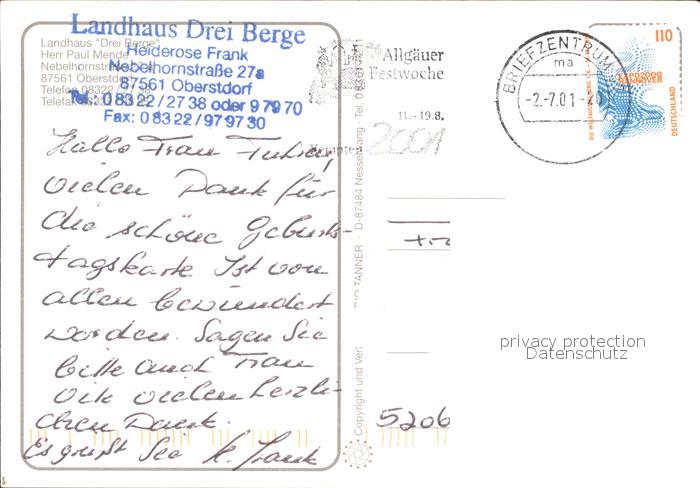 Landhaus Drei Berge
Heiderose Frank
Nebelhornstraße 27a
87561 Oberstdorf
Tel.: 0 83 22 / 27 38 oder 9 79 70
Fax: 0 83 22 / 97 97 30
Landhaus "Drei Berge"
Herr Paul Mende
Nebelhornstr
87561 Oberst
Telefon 08322
Telefax
Hallo Frau
vielen Dank für
die schöne Geburts-
tagskarte Ist von
allen bewundert
worden. Sagen Sie
bitte auch Frau
vielen herzli-
chen Dank.
Es grüßt Sie H. Frank
Allgäuer
Festwoche
11.-19.8.
Kempten 2001
BRIEFZENTRUM
ma
-2.-7.01-
110
EXPO2000
HANNOVER
DIE WELTAUSSTELLUNG
DEUTSCHLAND
TANNER · D-87484 Nesselwang · Tel.
Copyright und Verl
5206
privacy protection
Datenschutz